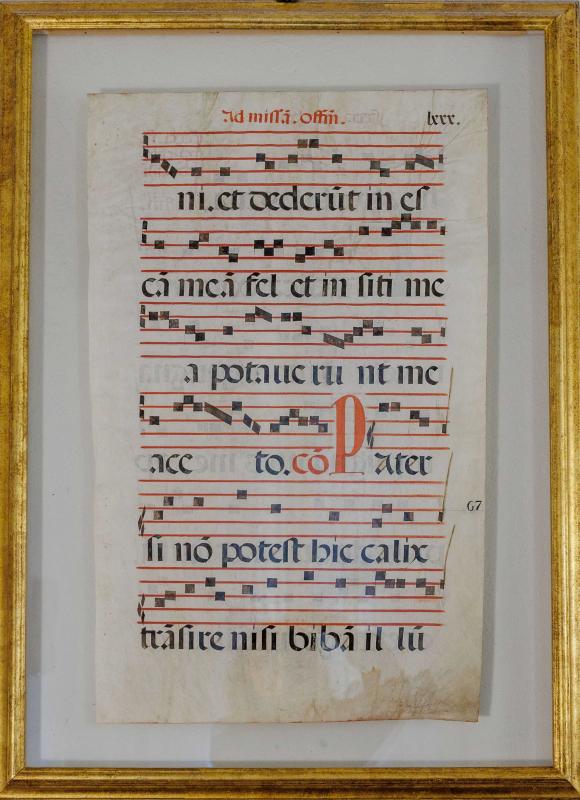 Ad missā. Offm̄. lxxx.
ni. et dederūt in es
cā meā fel et in siti me
a potaue ru nt me
ace to. cō Pater
67
si nō potest hic calix
trāsire nisi bibā il lū